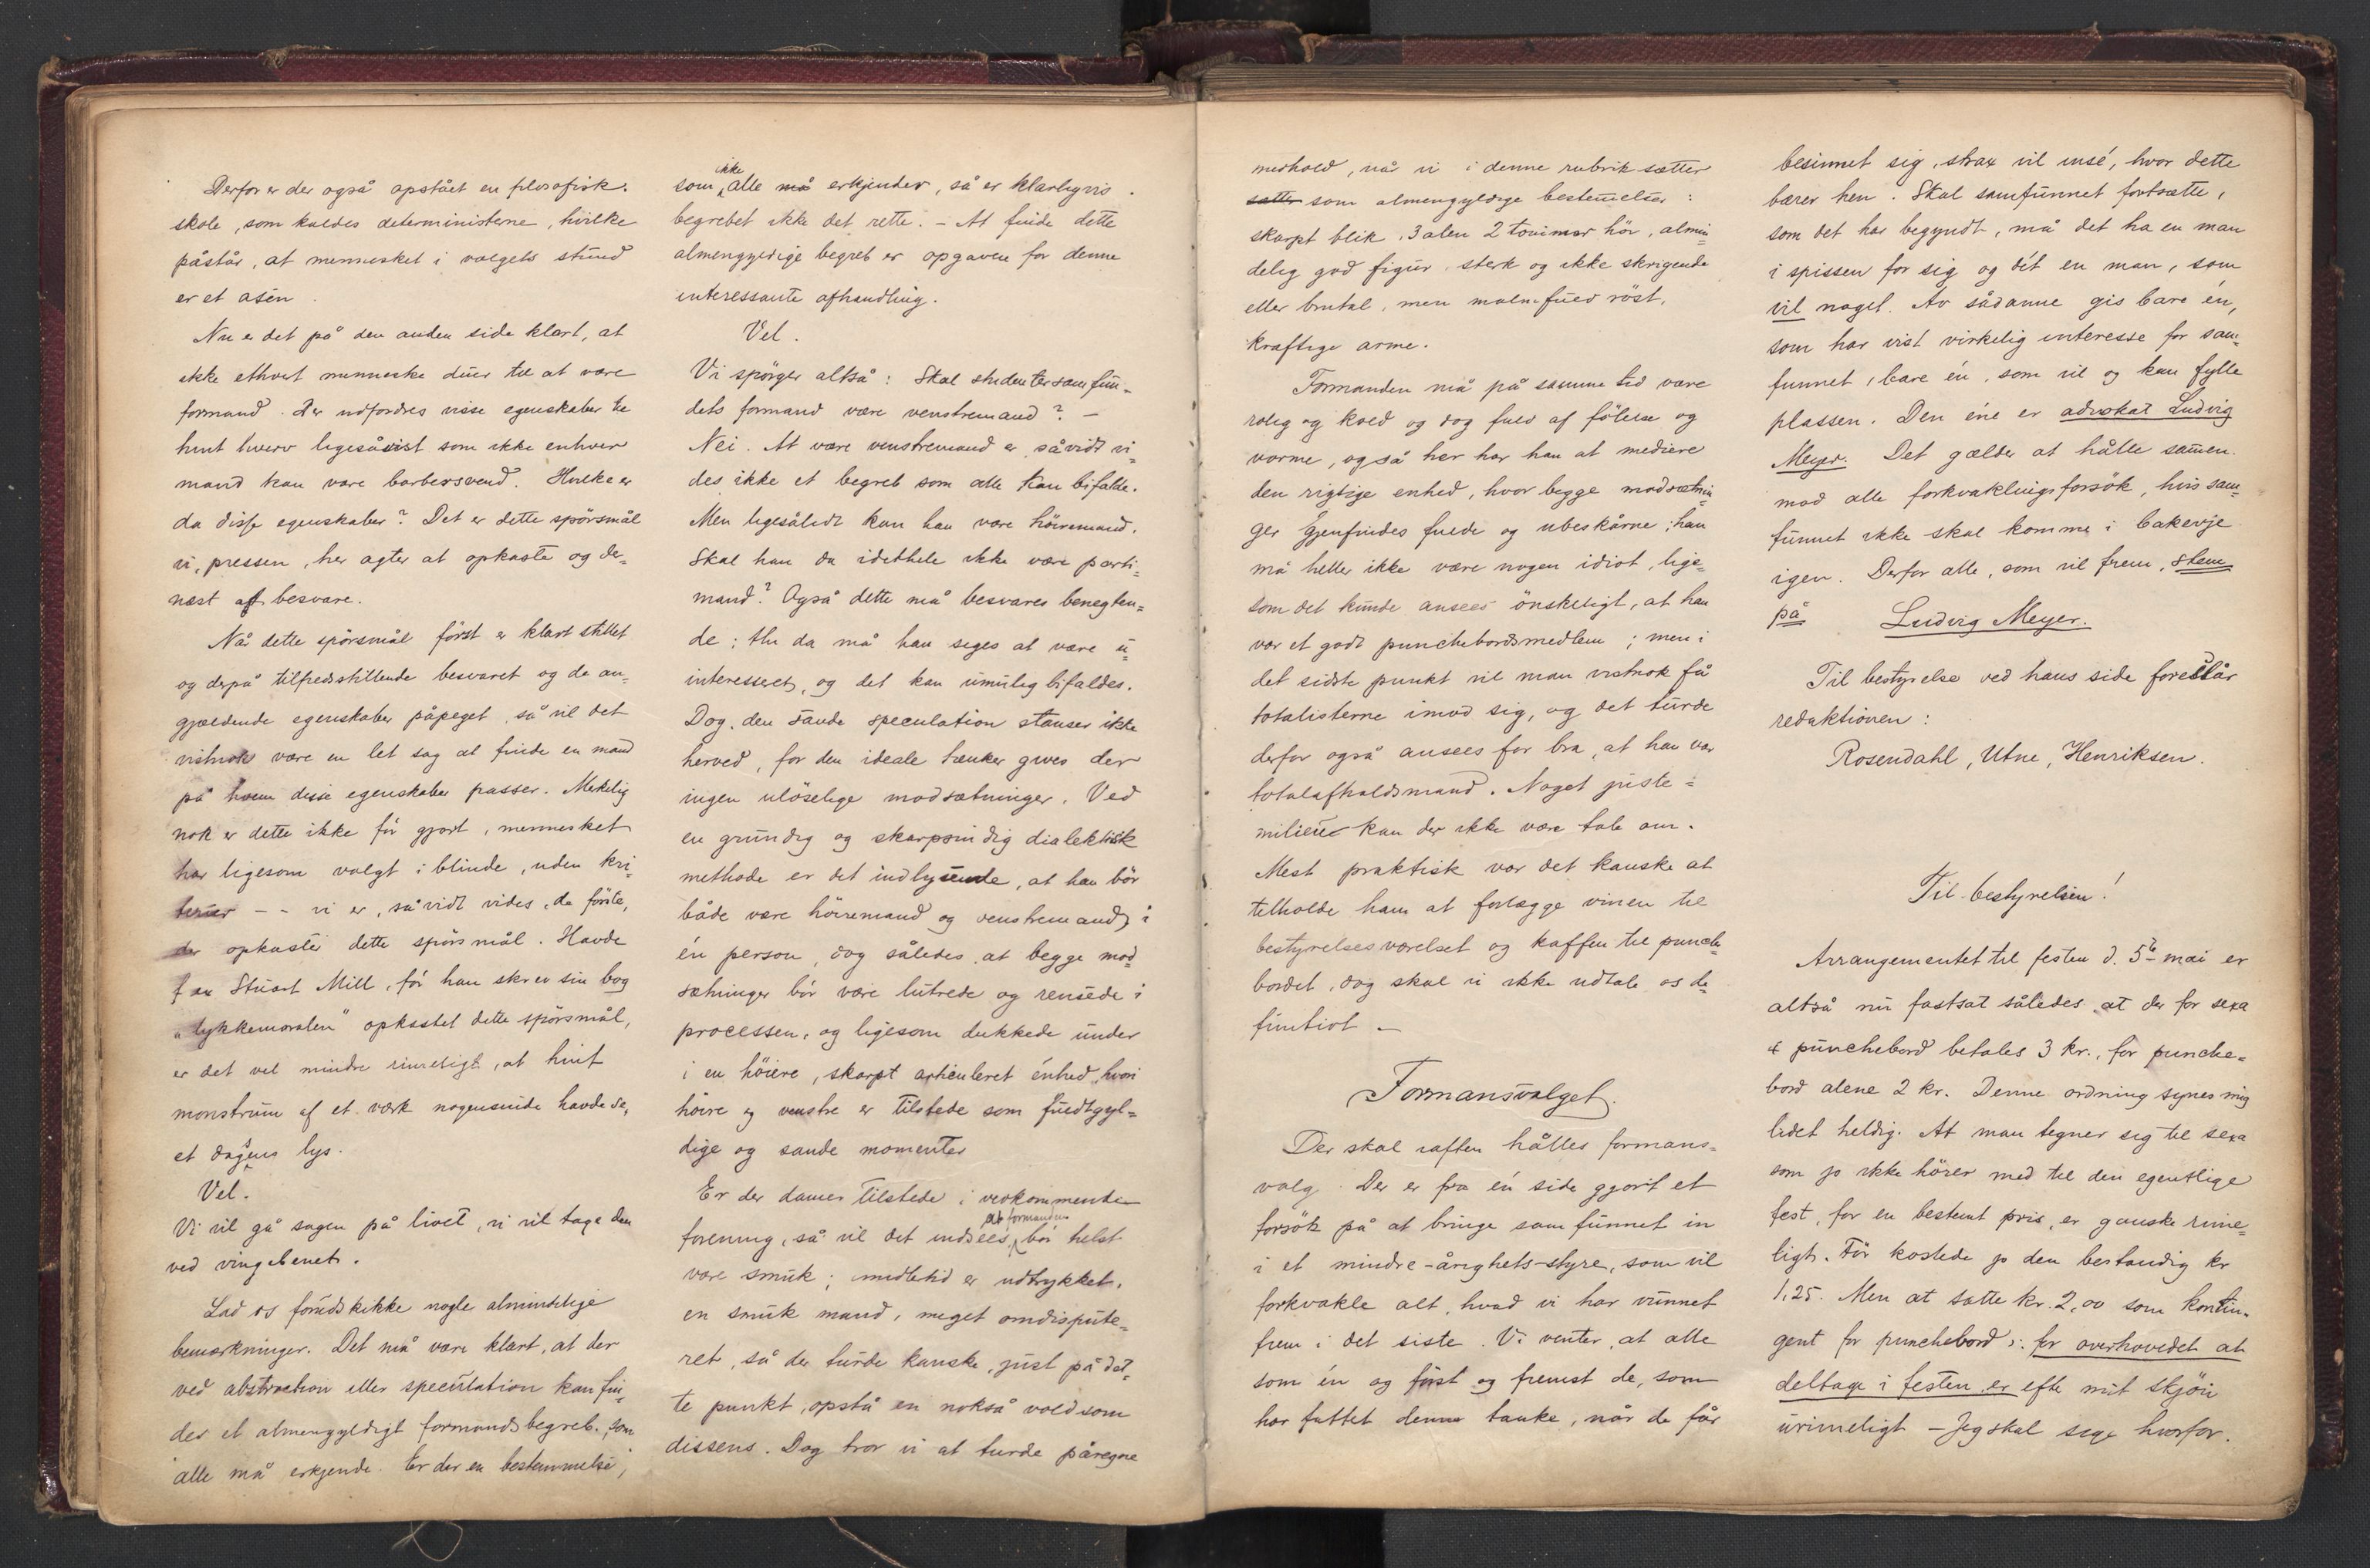 Derfor er der også opstået en filosofisk
skole, som kaldes deterministerne, hvilke
påstår, at mennesket i valgets stund
er et asen.
Nu er det på den anden side klart, at
ikke ethvert menneske duer til at være
formand. Der udfordres visse egenskaber til
hint hverv ligesåvist som ikke enhver
mand kan være barbersvend. Hvilke er
da disse egenskaber? Det er dette spörsmål
vi, pressen, her agter at opkaste og der-
næst at besvare.
Når dette spörsmål först er klart stillet
og derpå tilfredsstillende besvaret og de an-
gjældende egenskaber påpeget, så vil det
vistnok være en let sag at finde en mand
på hvem disse egenskaber passer. Merkelig
nok er dette ikke för gjort, mennesket
har ligesom valgt i blinde, uden kri-
terier -- vi er, så vidt vides, de förste,
der opkaster dette spörsmål. Havde
Stuart Mill, för han skrev sin bog
"lykkemoralen" opkastet dette spörsmål,
er det vel mindre rimeligt, at hint
monstrum af et værk nogensinde havde se-
et dagens lys.
Vel.
Vi vil gå sagen på livet, vi vil tage den
ved vingebenet.
Lad os forudskikke nogle almindelige
bemærkninger. Det må være klart, at der
ved abstraction eller speculation kan fin-
des et almengyldigt formandsbegreb, som
alle må erkjende. Er der en bestemmelse,
som ikke alle må erkjender, så er klarligvis
begrebet ikke det rette. - At finde dette
almengyldige begreb er opgaven for denne
interessante afhandling.
Vel.
Vi spörger altså: Skal studentersamfun-
dets formand være venstremand? -
Nei. At være venstremand er såvidt vi-
des ikke et begreb som alle kan bifalde.
Men ligesålidt kan han være höiremand.
Skal han da idethele ikke være parti-
mand? Også dette må besvares benegten-
de; thi da må han siges at være u-
interesseret, og det kan umulig bifaldes.
Dog, den sande speculation stanser ikke
herved, for den ideale tænker gives der
ingen ulöselige modsætninger. Ved
en grundig og skarpsindig dialektisk
methode er det indlysende, at han bör
både være höiremand og venstremand i
én person, dog således at begge mod-
sætninger bör være lutrede og rensede i
processen, og ligesom dukkede under
i en höiere, skarpt articuleret énhed, hvori
höire og venstre er tilstede som fuldgyl-
dige og sande momenter
Er der damer tilstede i vedkommende
forening, så vil det indsees, at formanden bör helst
være smuk; imidlertid er udtrykket,
en smuk mand, meget omdispute-
ret, så der turde kanske, just på det-
te punkt, opstå en nokså voldsom
dissens. Dog tror vi at turde påregne
medhold, når vi i denne rubrik sætter
sætter som almengyldige bestemmelser:
skarpt blik, 3 alen 2 tommer höi, almin-
delig god figur, sterk og ikke skrigende
eller brutal, men malmfuld röst,
kraftige arme.
Formanden må på samme tid være
rolig og kold og dog fuld af fölelse og
varme, også her har han at mediere
den rigtige enhed, hvor begge modsætnin-
ger gjenfindes fulde og ubeskårne; han
må heller ikke være nogen idiot, lige-
som det kunde ansees önskeligt, at han
var et godt punchebordsmedlem; men i
det sidste punkt vil man vistnok få
totalisterne imod sig, og det turde
derfor også ansees for bra, at han var
totalafholdsmand. Noget juste-
milieu kan der ikke være tale om.
Mest praktisk var det kanske at
tilholde ham at forlægge vinen til
bestyrelsesværelset og kaffen til punche
bordet, dog skal vi ikke udtale os de-
finitivt -
Formansvalget.
Der skal iaften håldes formans-
valg. Der er fra én side gjort et
forsök på at bringe samfunnet in
i et mindre-årighets-styre, som vil
forkvakle alt, hvad vi har vunnet
frem i det siste. Vi venter, at alle
som én og först og fremst de, som
har fattet denne tanke, når de får
besinnet sig, strax vil insé, hvor dette
bærer hen. Skal samfunnet fortsætte,
som det har begyndt, må det ha en man
i spissen for sig og dét en man, som
vil noget. Av sådanne gis bare én,
som har vist virkelig interesse for sam-
funnet, bare én, som vil og kan fylle
plassen. Den éne er advokat Ludvig
Meyer. Det gælder at hålle sammen
mod alle forkvaklingsforsök, hvis sam-
funnet ikke skal komme i bakevje
igen. Derfor alle, som vil frem, stem
på Ludvig Meyer.
Til bestyrelse ved hans side foreslår
redaktionen:
Rosendahl, Utne, Henriksen.
Til bestyrelsen!
Arrangementet til festen d. 5te mai er
altså nu fastsat således at der for sexa
& punchebord betales 3 kr., for punche-
bord alene 2 kr. Denne ordning synes mig
lidet heldig. At man tegner sig til sexa
som jo ikke hörer med til den egentlige
fest, for en bestemt pris, er ganske rime-
ligt. För kostede jo den bestandig kr
1,25. Men at sætte kr. 2,00 som kontin-
gent for punchebord ɔ: for overhovedet at
deltage i festen er efter mit skjön
urimeligt - Jeg skal sige hvorfor.